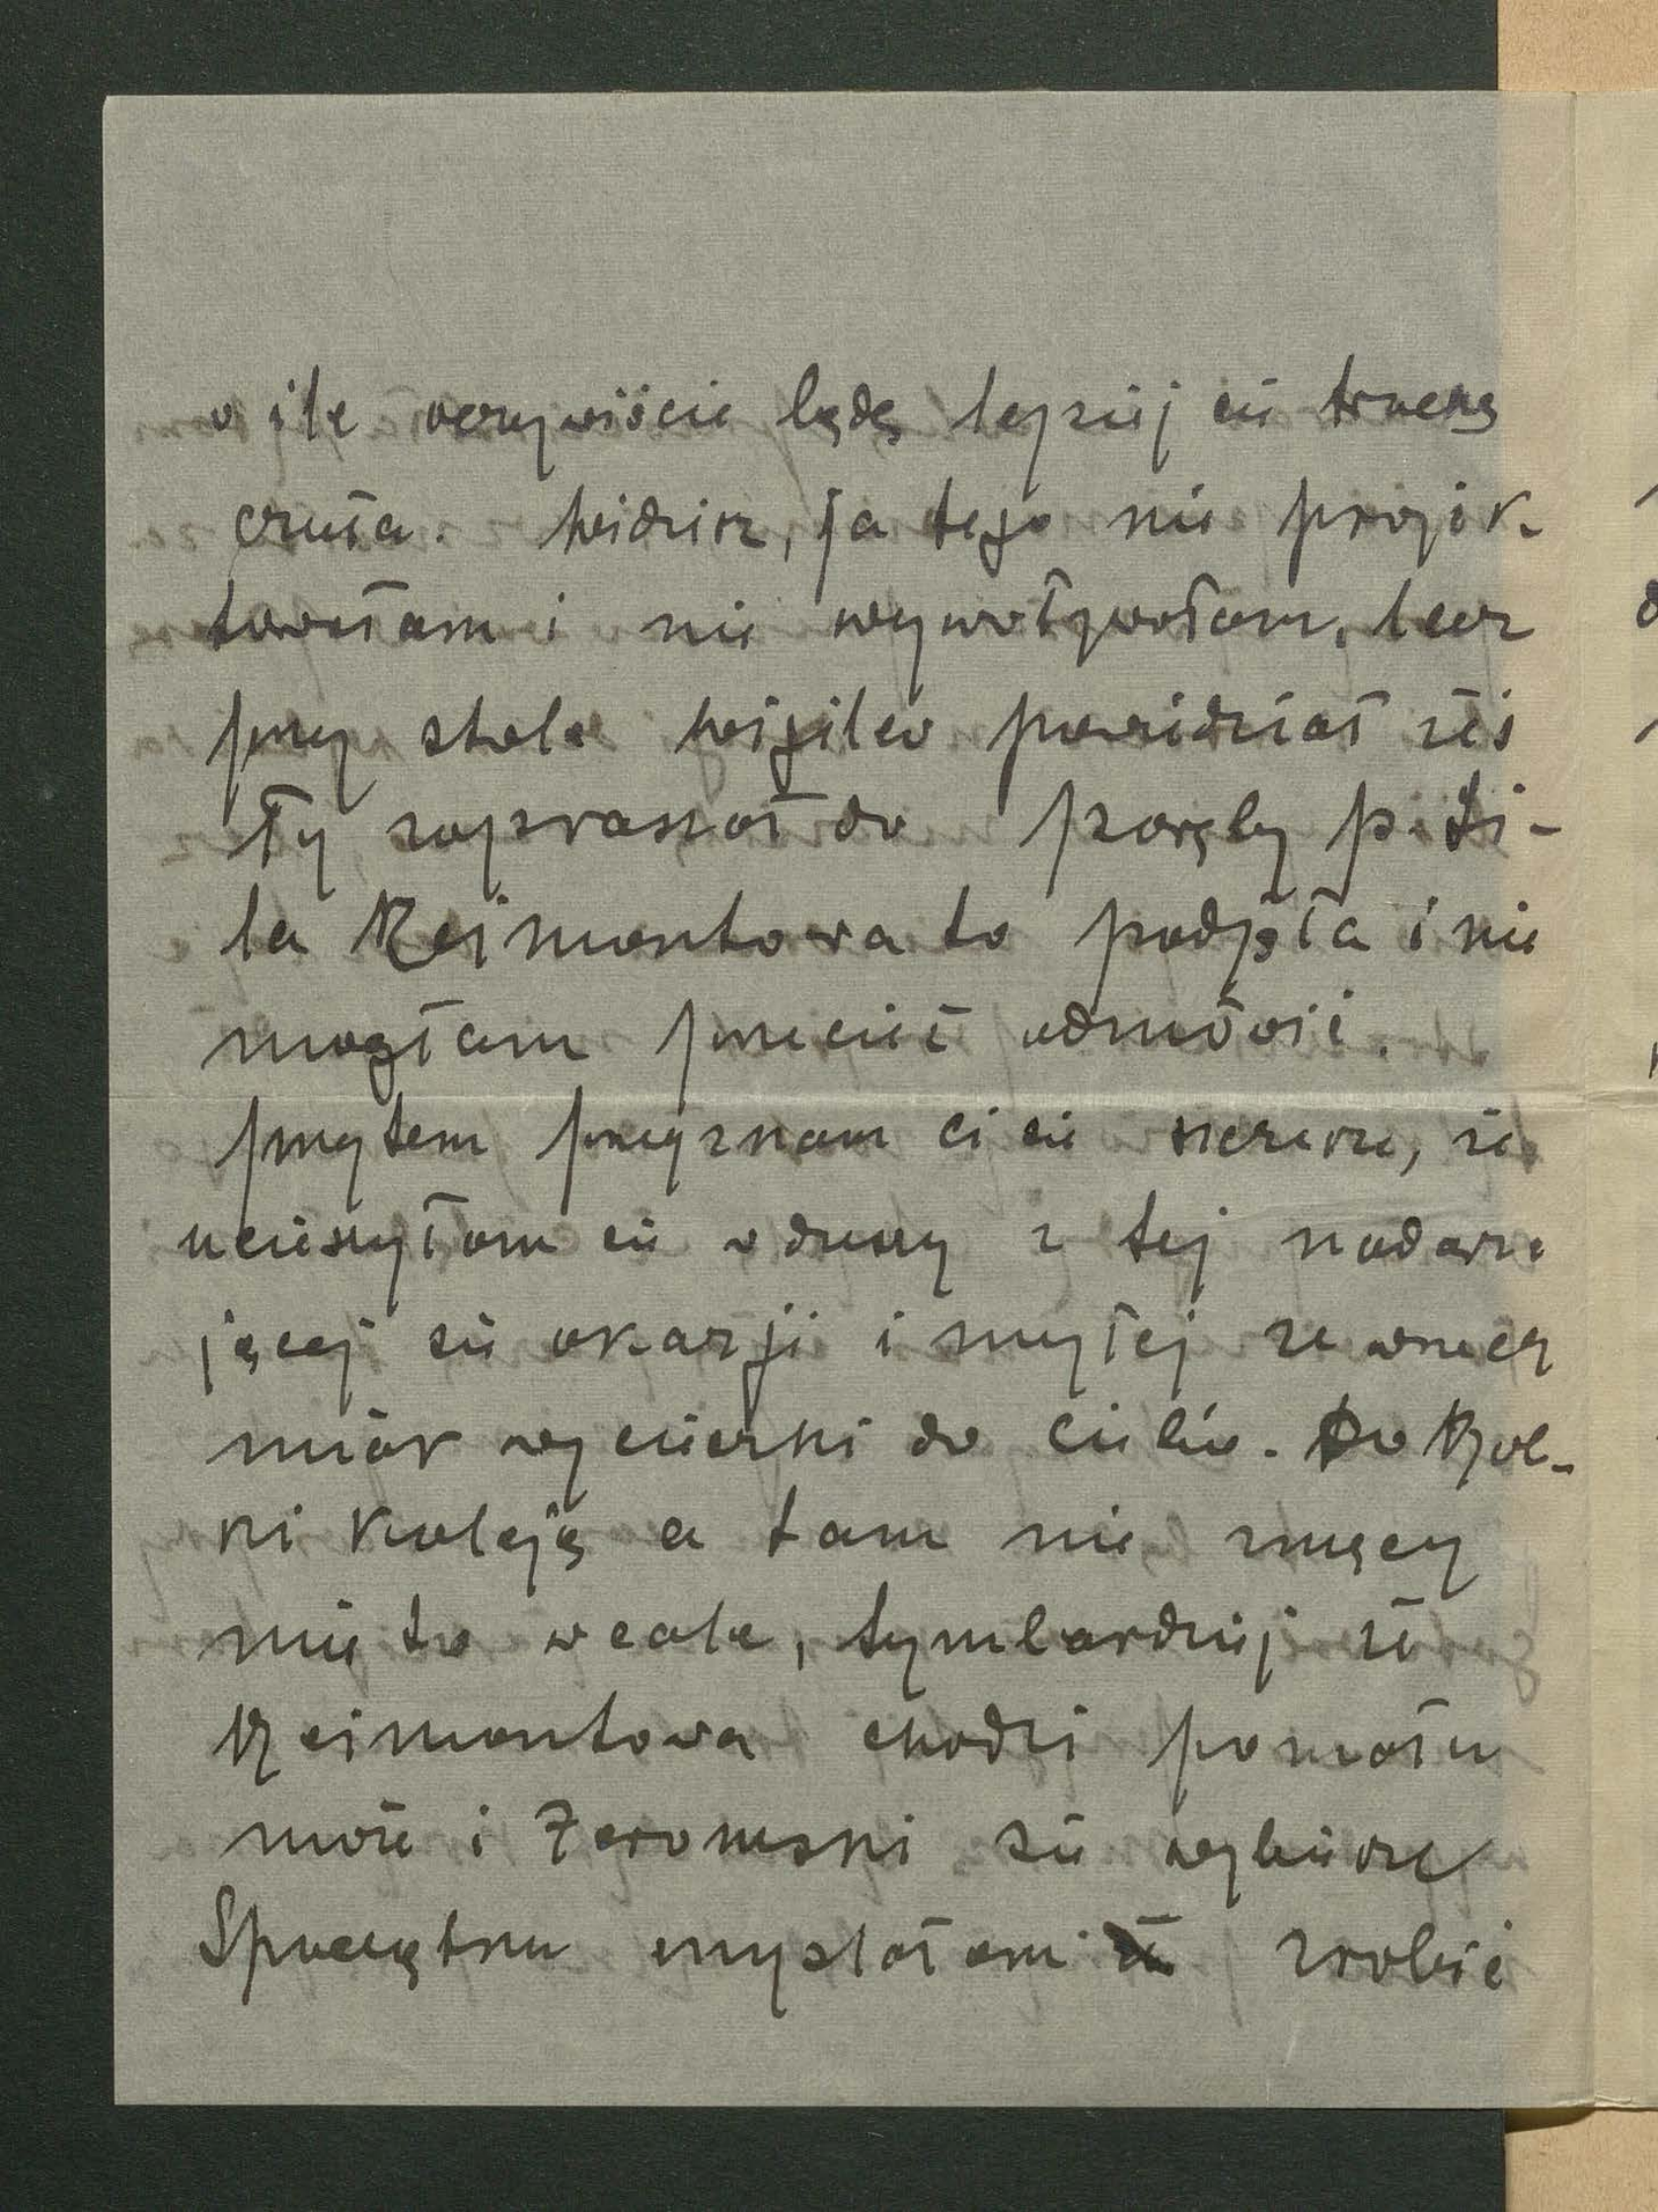 o ile oczywiście będę lepiej się trochę
czuła. Widzisz, ja tego nie projek-
towałam i nie wywoływałam, lecz
przy stole Wigilew powiedział żeś
Ty zapraszał do Poręby p.
la Reimontowa to podjęła i nie
mogłam przecież odmówić.
przytem przyznam ci się szczerze, że
ucieszyłam się w duszy z tej nadarza
jącej się okazji i miłej ze wszech
miar wycieczki do Ciebie. Do Rzol-
ki koleją a tam nie zmęczy
mię to wcale, tymbardziej że
Reimontowa chodzi pomału
może i Żeromski się wybierze
Spoczątku myślałam zrobić